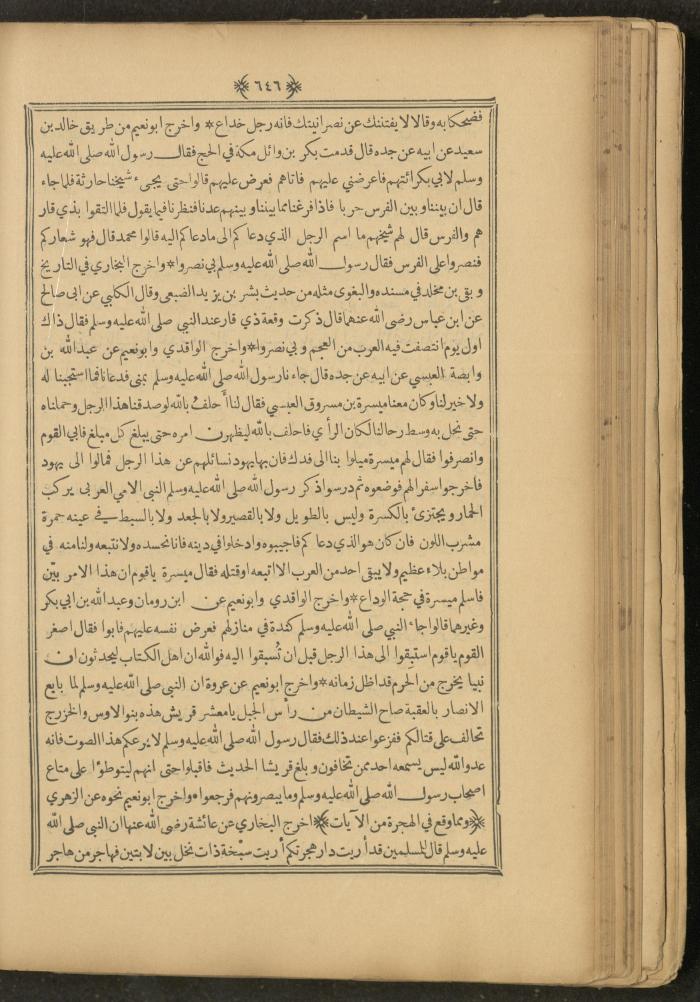 ﴿٦٤٦﴾
فضحكا به وقالا لا يفتننك عن نصرانيتك فانه رجل خداع * واخرج ابو نعيم من طريق خالد بن
سعيد عن ابيه عن جده قال قدمت بكر بن وائل مكة في الحج فقال رسول الله صلى الله عليه
وسلم لابي بكر ائتهم فاعرضني عليهم فاتاهم فعرض عليهم قالوا حتى يجيء شيخنا حارثة فلما جاء
قال ان بيننا وبين الفرس حربا فاذا فرغنا مما بيننا وبينهم عدنا فنظرنا فيما يقول فلما التقوا بذي قار
هم والفرس قال لهم شيخهم ما اسم الرجل الذي دعاكم الى ما دعاكم اليه قالوا محمد قال فهو شعاركم
فنصروا على الفرس فقال رسول الله صلى الله عليه وسلم بي نصروا * واخرج البخاري في التاريخ
وبقى بن مخلد في مسنده والبغوى مثله من حديث بشر بن يزيد الضبعى وقال الكلبي عن ابى صالح
عن ابن عباس رضى الله عنهما قال ذكرت وقعة ذي قار عند النبي صلى الله عليه وسلم فقال ذاك
اول يوم انتصفت فيه العرب من العجم وبي نصروا * واخرج الواقدي وابو نعيم عن عبد الله بن
وابصة العبسي عن ابيه عن جده قال جاءنا رسول الله صلى الله عليه وسلم بمنى فدعانا فما استجبنا له
ولا خير لنا وكان معنا ميسرة بن مسروق العبسي فقال لنا أحلف بالله لو صدقنا هذا الرجل وحملناه
حتى نحل به وسط رحالنا لكان الرأي فاحلف بالله ليظهرن امره حتى يبلغ كل مبلغ فابي القوم
وانصرفوا فقال لهم ميسرة ميلوا بنا الى فدك فان بها يهود نسائلهم عن هذا الرجل فمالوا الى يهود
فاخرجوا سفرا لهم فوضعوه ثم درسوا ذكر رسول الله صلى الله عليه وسلم النبي الامي العربى يركب
الحمار ويجتزئ بالكسرة وليس بالطويل ولا بالقصير ولا بالجعد ولا بالسبط في عينه حمرة
مشرب اللون فان كان هو الذي دعاكم فاجيبوه وادخلوا في دينه فانا نحسده ولا نتبعه ولنا منه في
مواطن بلاء عظيم ولا يبقى احد من العرب الا اتبعه او قتله فقال ميسرة ياقوم ان هذا الامر بيّن
فاسلم ميسرة في حجة الوداع * واخرج الواقدي وابو نعيم عن ابن رومان وعبد الله بن ابي بكر
وغيرهما قالوا جاء النبي صلى الله عليه وسلم كندة في منازلهم فعرض نفسه عليهم فابوا فقال اصغر
القوم ياقوم استبقوا الى هذا الرجل قبل ان تُسبقوا اليه فوالله ان اهل الكتاب ليحدثون ان
نبيا يخرج من الحرم قد اظل زمانه * واخرج ابو نعيم عن عروة ان النبي صلى الله عليه وسلم لما بايع
الانصار بالعقبة صاح الشيطان من رأس الجبل يا معشر قريش هذه بنو الاوس والخزرج
تحالف على قتالكم ففزعوا عند ذلك فقال رسول الله صلى الله عليه وسلم لا يرعكم هذا الصوت فانه
عدو الله ليس يسمعه احد ممن تخافون وبلغ قريشا الحديث فاقبلوا حتى انهم ليتوطؤا على متاع
اصحاب رسول الله صلى الله عليه وسلم وما يبصرونهم فرجعوا * واخرج ابو نعيم نحوه عن الزهري
﴿ومما وقع في الهجرة من الآيات﴾ اخرج البخاري عن عائشة رضى الله عنها ان النبي صلى الله
عليه وسلم قال للمسلمين قد أريت دار هجرتكم أريت سبخة ذات نخل بين لابتين فهاجر من هاجر